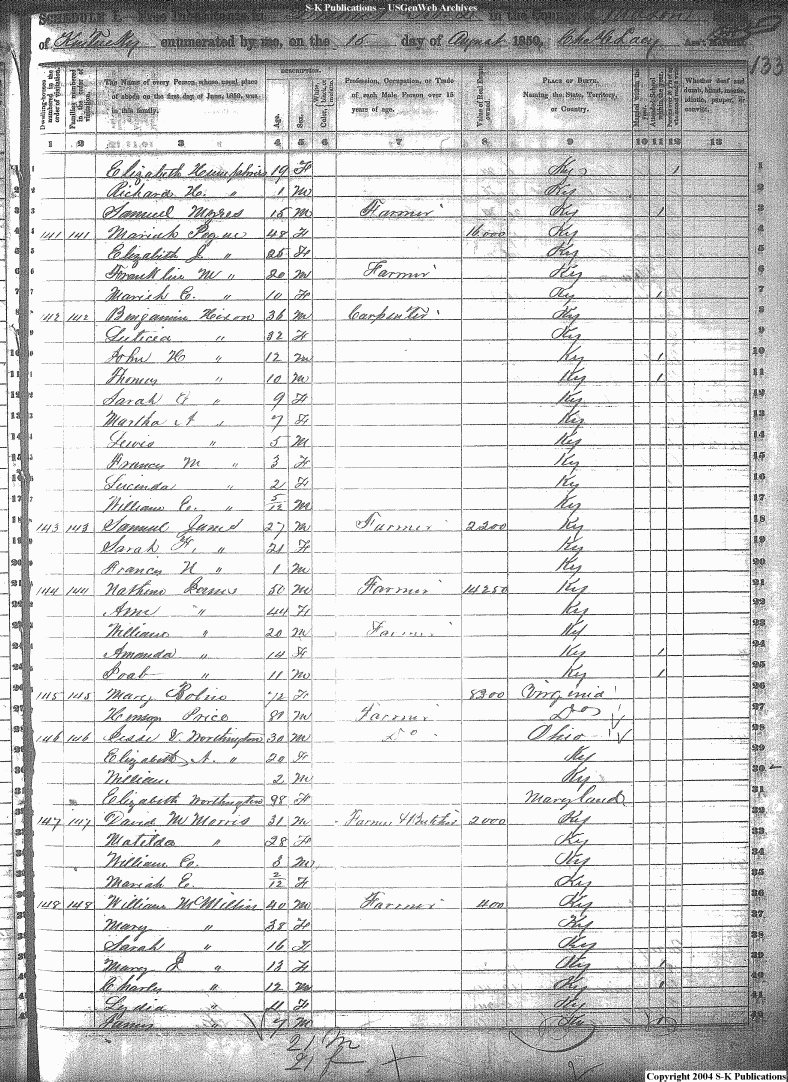 S-K Publications -- USGenWeb Archives
SCHEDULE I. Free Inhabitants in in the County of
of Kentucky enumerated by me, on the 15 day of August 1850. Ass't Marshal.
133
DESCRIPTION.
Dwelling-houses numbered in the order of visitation. Families numbered in the order of visitation. The Name of every Person whose usual place of abode on the first day of June, 1850, was in this family. Age. Sex. Color, White, black, or mulatto. Profession, Occupation, or Trade of each Male Person over 15 years of age. Value of Real Estate owned. PLACE OF BIRTH. Naming the State, Territory, or Country. Married within the year. Attended School within the year. Whether deaf and dumb, blind, insane, idiotic, pauper, or convict.
1 2 3 4 5 6 7 8 9 10 11 12 13
1 Elizabeth Humphries 19 F Ky 1 1
2 Richard H. " 1 M Ky 2
3 Samuel Moyres 15 M Farmer Ky 1 3
4 141 141 Mariah Pogue 48 F 16000 Ky 4
5 Elizabeth J. " 25 F Ky 5
6 Franklin M " 20 M Farmer Ky 6
7 Mariah C. " 10 F Ky 1 7
8 142 142 Benjamin Hison 36 M Carpenter Ky 8
9 Luticia " 32 F Ky 9
10 John H " 12 M Ky 1 10
11 Thomas " 10 M Ky 1 11
12 Sarah " 9 F Ky 12
13 Martha A " 7 F Ky 13
14 Lewis " 5 M Ky 14
15 Frances M " 3 F Ky 15
16 Lucinda " 2 F Ky 16
17 William E. " 5/12 M Ky 17
18 143 143 Samuel James 27 M Farmer 2200 Ky 18
19 Sarah F. " 21 F Ky 19
20 Francis N " 1 M Ky 20
21 144 144 James 50 M Farmer 14250 Ky 21
22 Ann " 44 F Ky 22
23 William " 20 M Farmer Ky 23
24 Amanda " 14 F Ky 1 24
25 Joab " 11 M Ky 1 25
26 145 145 Mary 72 F 8300 Virginia 26
27 Henson Price 89 M Farmer Do 27
28 146 146 Jesse Worthington 30 M Do Ohio 28
29 Elizabeth A. " 20 F Ky 29
30 William 2 M Ky 30
31 Elizabeth Worthington 98 F Maryland 31
32 147 147 David M Morris 31 M Farmer & Butcher 2000 Ky 32
33 Matilda " 28 F Ky 34
34 William C. 3 M Ky 35
35 Mariah E. 2/12 F Ky
36 148 148 William McMillin 40 M Farmer 400 Ky 36
37 Mary " 38 F Ky
38 Sarah " 16 F Ky 38
39 Mary " 13 F Ky 1 39
40 Charles " 12 M Ky 1 40
41 Lydia " 11 F Ky 41
42 James " 7 M Ky 1 42
21 M
21 F
Copyright 2004 S-K Publications